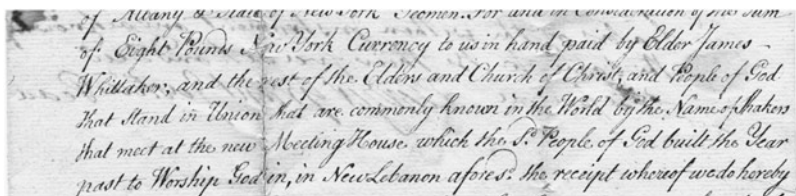 of Albany & State of New York Yeomen. For and in Consideration of the Sum
of Eight Pounds New York Currency to us in hand paid by Elder James
Whittaker, and the rest of the Elders and Church of Christ, and People of God
that Stand in Union that are commonly known in the World by the Name of Shakers
that meet at the new Meeting House which the Sd. People of God built the Year
past to Worship God in, in New Lebanon aforesd. the receipt whereof we do hereby